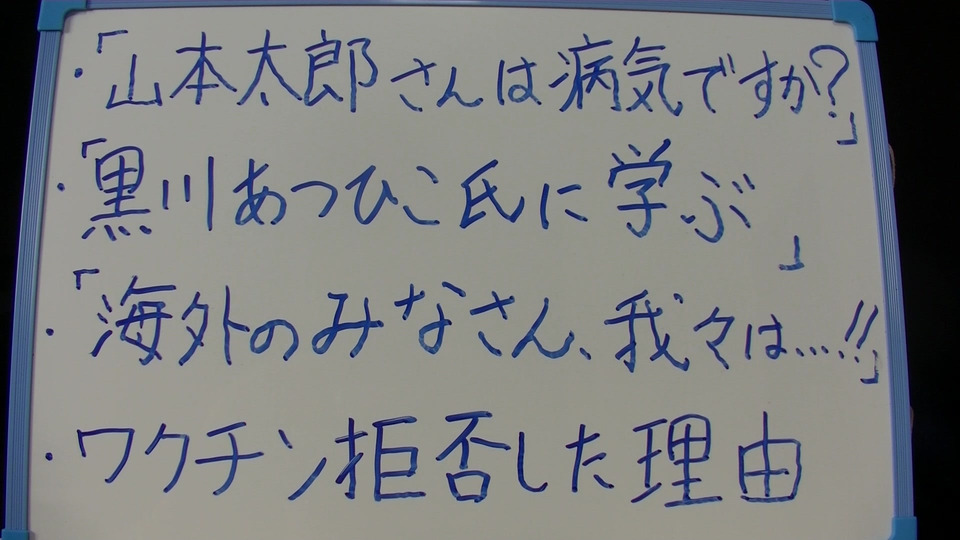 ・「山本太郎さんは病気ですか?」
・「黒川あつひこ氏に学ぶ」
・「海外のみなさん、我々は...!!」
・ワクチン拒否した理由